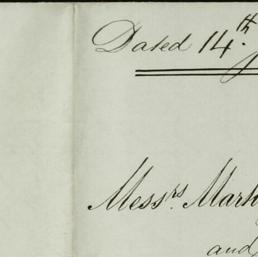 Dated 14th
Messrs. Mark
and